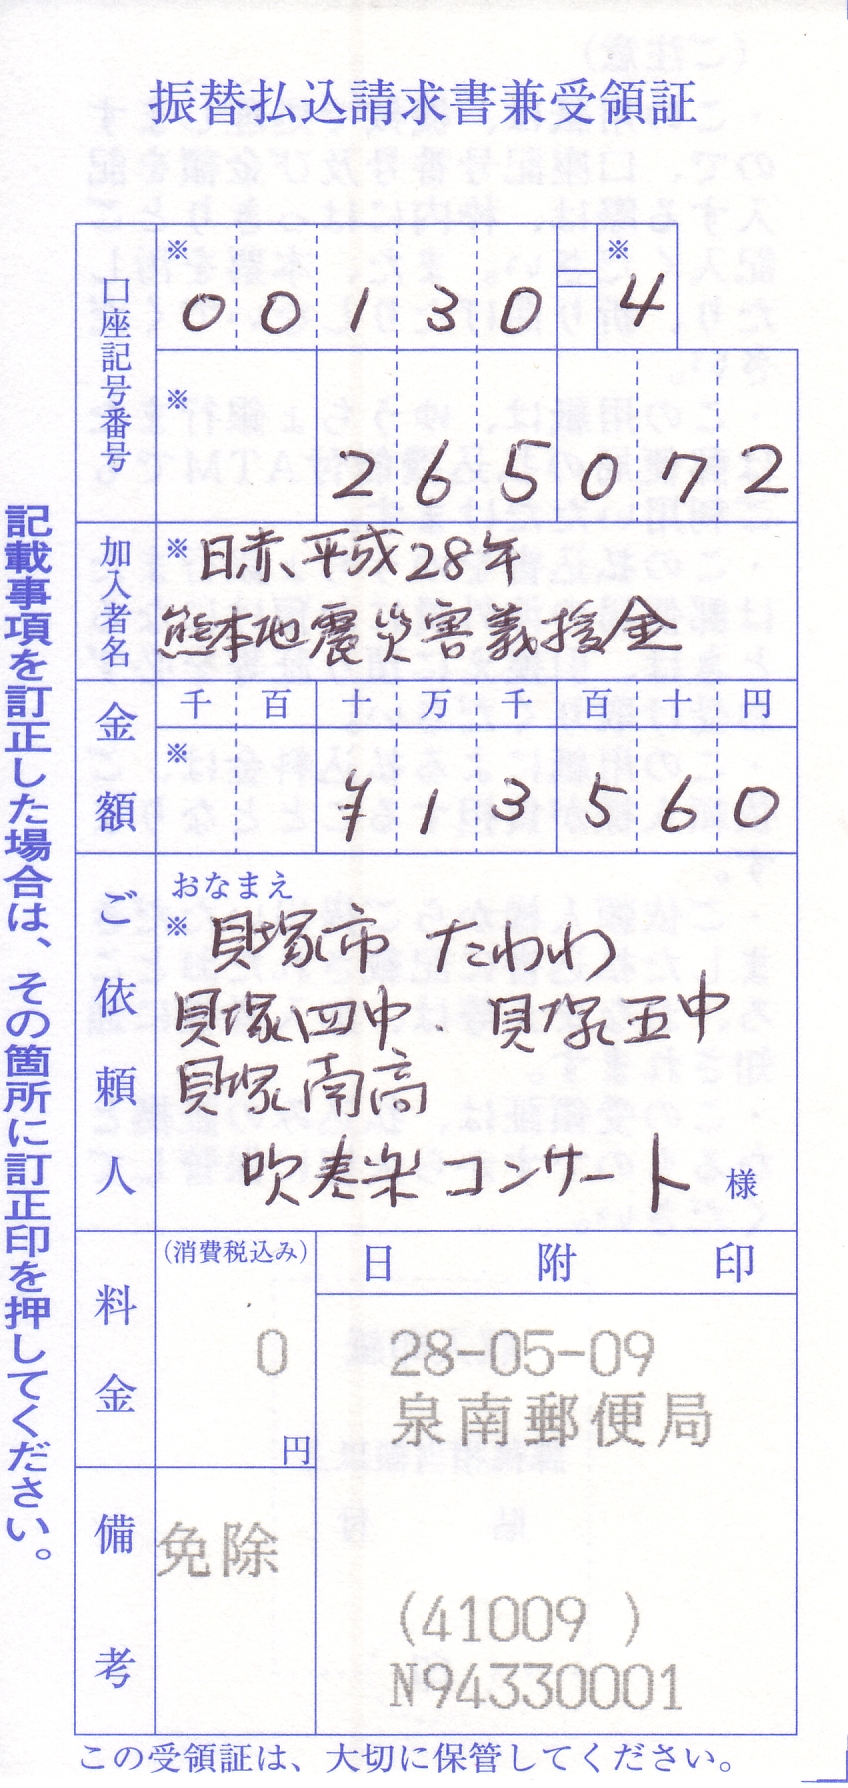 振替払込請求書兼受領証
口座記号番号
※ ※
00130=4
※
265072
加入者名
※日赤、平成28年
熊本地震災害義援金
金額
千 百 十 万 千 百 十 円
※
¥13560
ご依頼人
おなまえ
※貝塚市 たわわ
貝塚四中・貝塚五中
貝塚南高
吹奏楽コンサート 様
料金
(消費税込み)
0
円
日附印
28-05-09
泉南郵便局
備考
免除
(41009 )
N94330001
この受領証は、大切に保管してください。
記載事項を訂正した場合は、その箇所に訂正印を押してください。